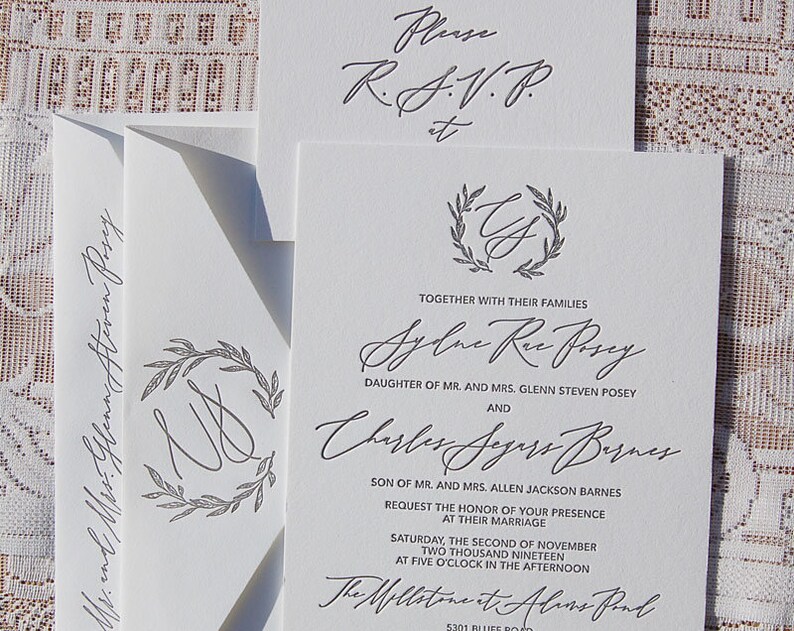 Please
R. S. V. P.
at
CS
TOGETHER WITH THEIR FAMILIES
Sydne Rae Posey
DAUGHTER OF MR. AND MRS. GLENN STEVEN POSEY
AND
Charles Segars Barnes
SON OF MR. AND MRS. ALLEN JACKSON BARNES
REQUEST THE HONOR OF YOUR PRESENCE
AT THEIR MARRIAGE
SATURDAY, THE SECOND OF NOVEMBER
TWO THOUSAND NINETEEN
AT FIVE O'CLOCK IN THE AFTERNOON
The Millstone at Adams Pond
5301 BLUFF ROAD
CS
Mr. and Mrs. Glenn Steven Posey